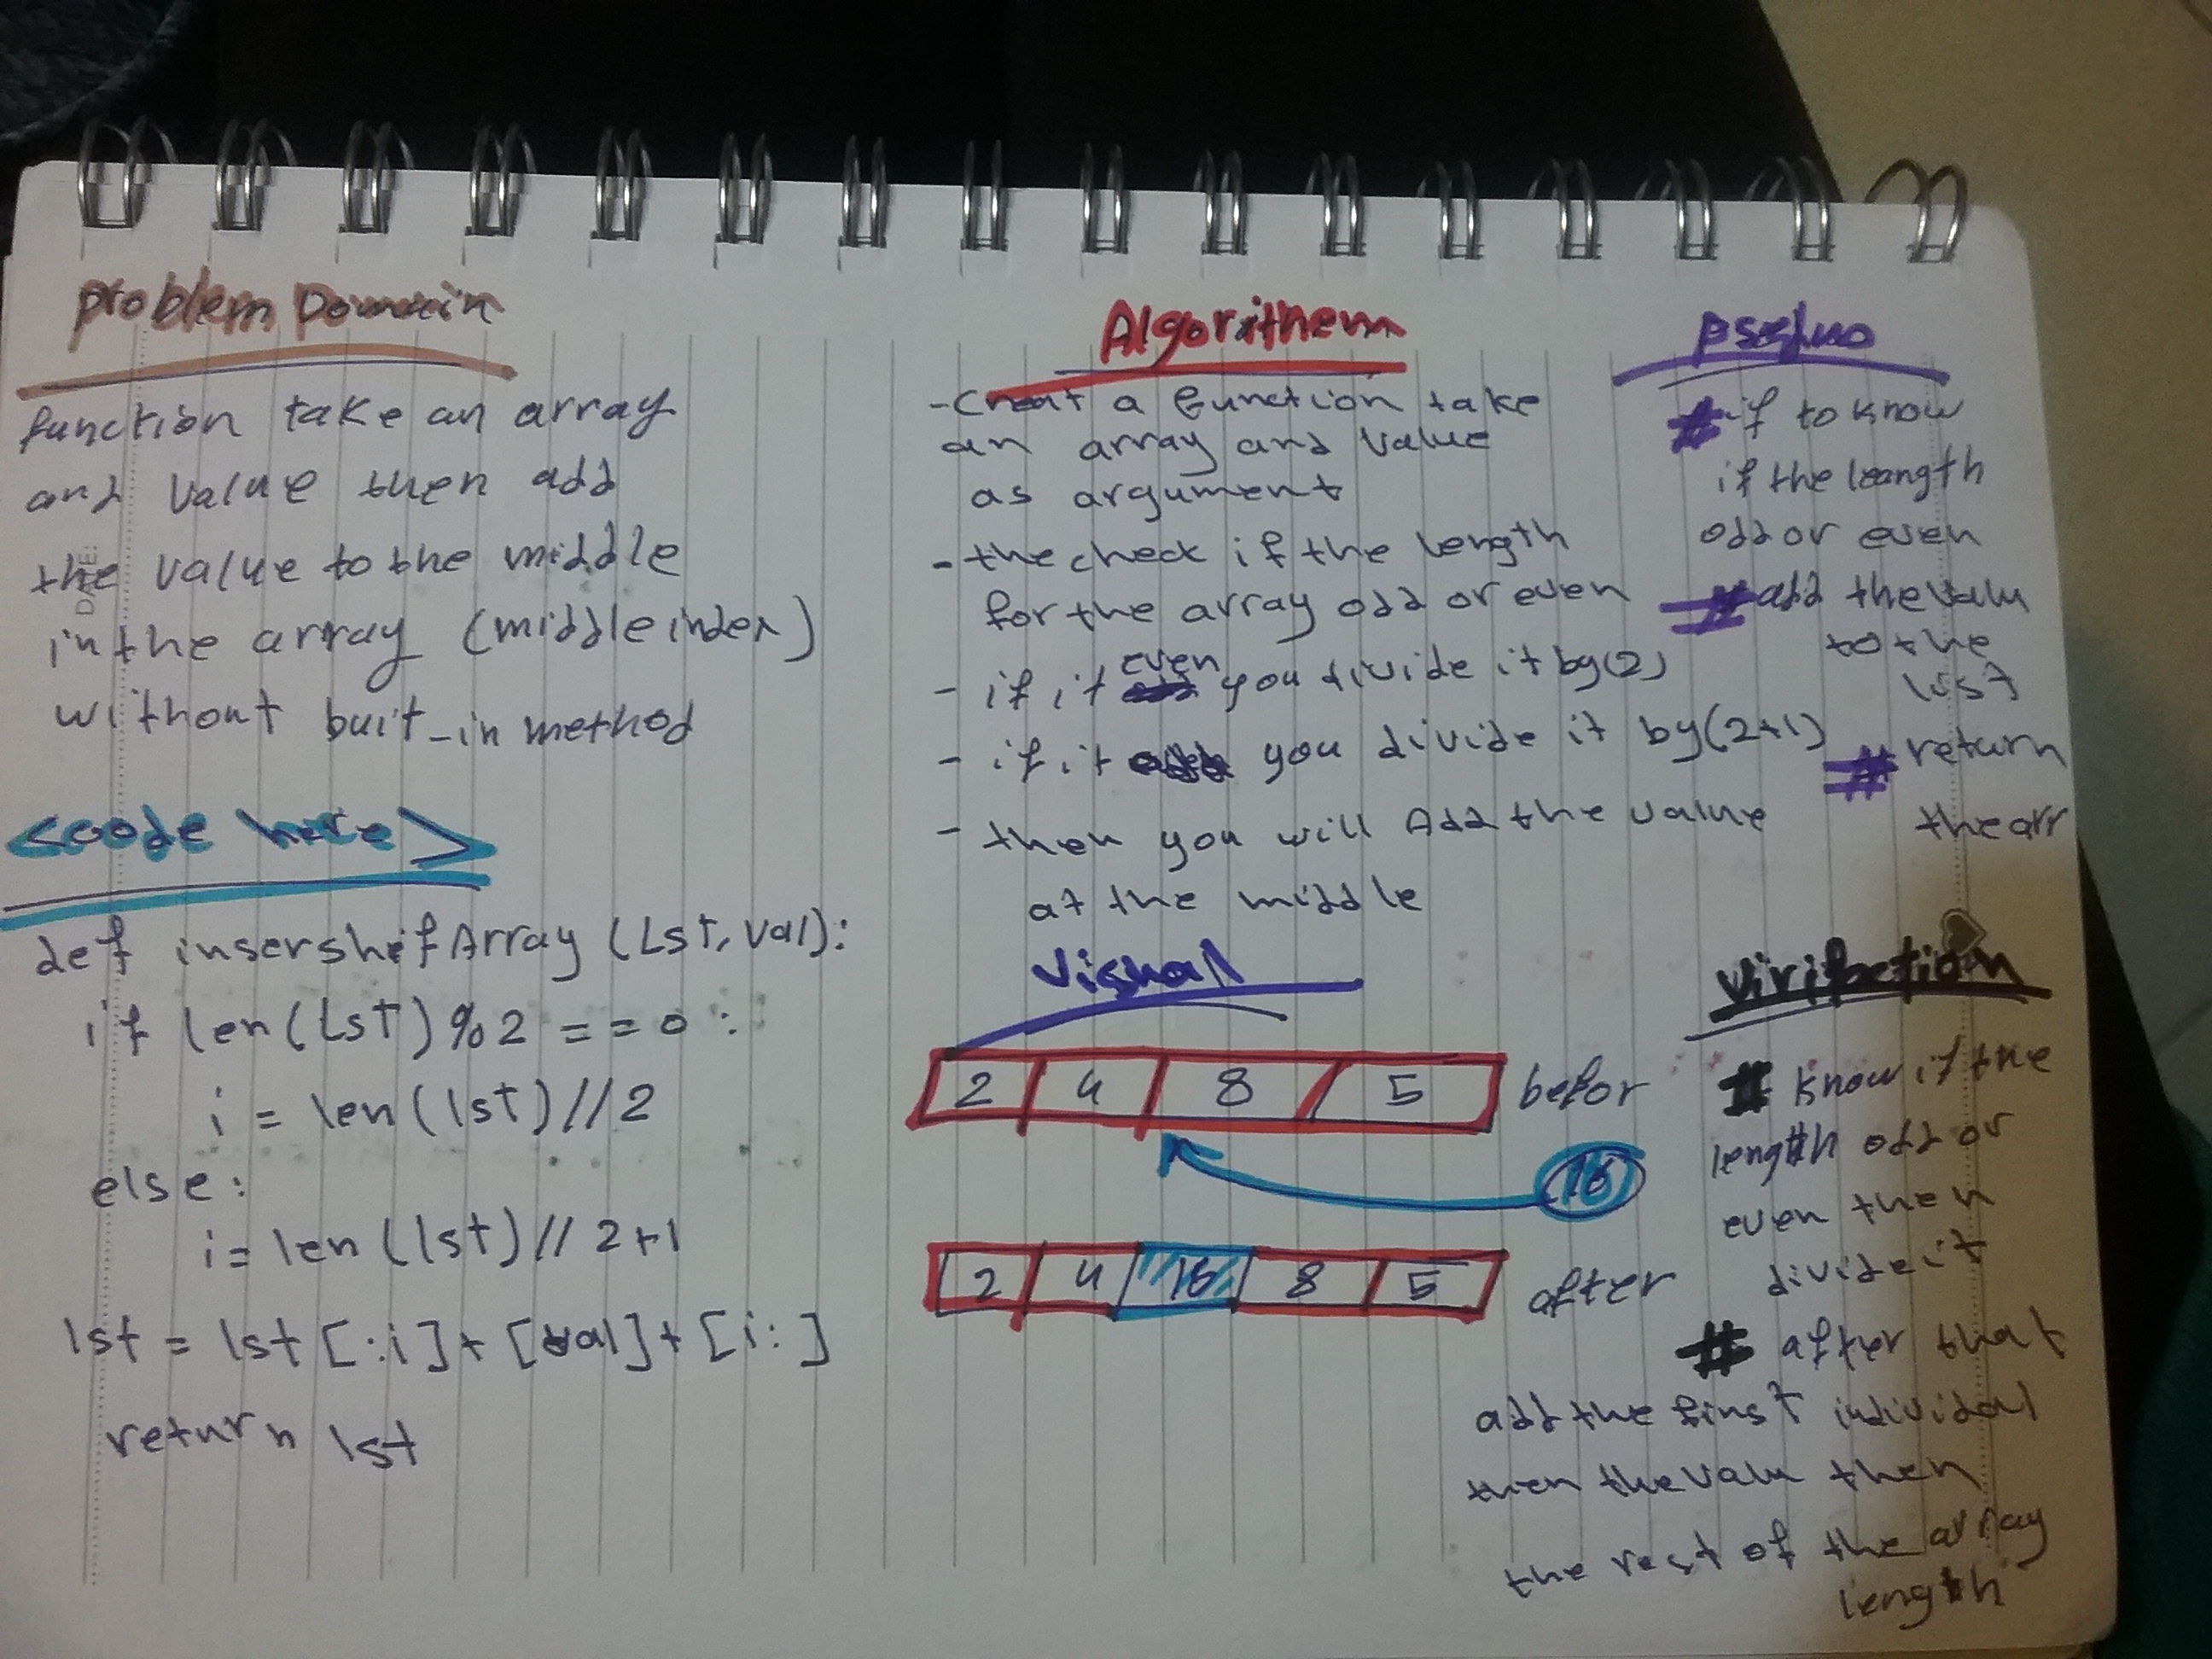 problem Domain
function take an array
and value then add
the value to the middle
in the array (middle index)
without buit_in method
<code here>
def insershifArray (Lst, val):
if len(lst) % 2 == 0 :
i = len(lst)//2
else:
i = len(lst)// 2+1
lst = lst [:i] + [val] + [i:]
return lst
Algorithem
- Creat a function take
an array and value
as argument
- the check if the length
for the array odd or even
- if it even you divide it by(2)
- if it you divide it by(2+1)
- then you will Add the value
at the middle
Visual
2 4 8 5 befor
16
2 4 16 8 5 after
# if to know
if the leangth
odd or even
# add the valu
to the
list
# return
the arr
DATE:
virifaction
# know if the
length odd or
even then
divide it
# after that
add the first individal
then the valu then
the rest of the array
length